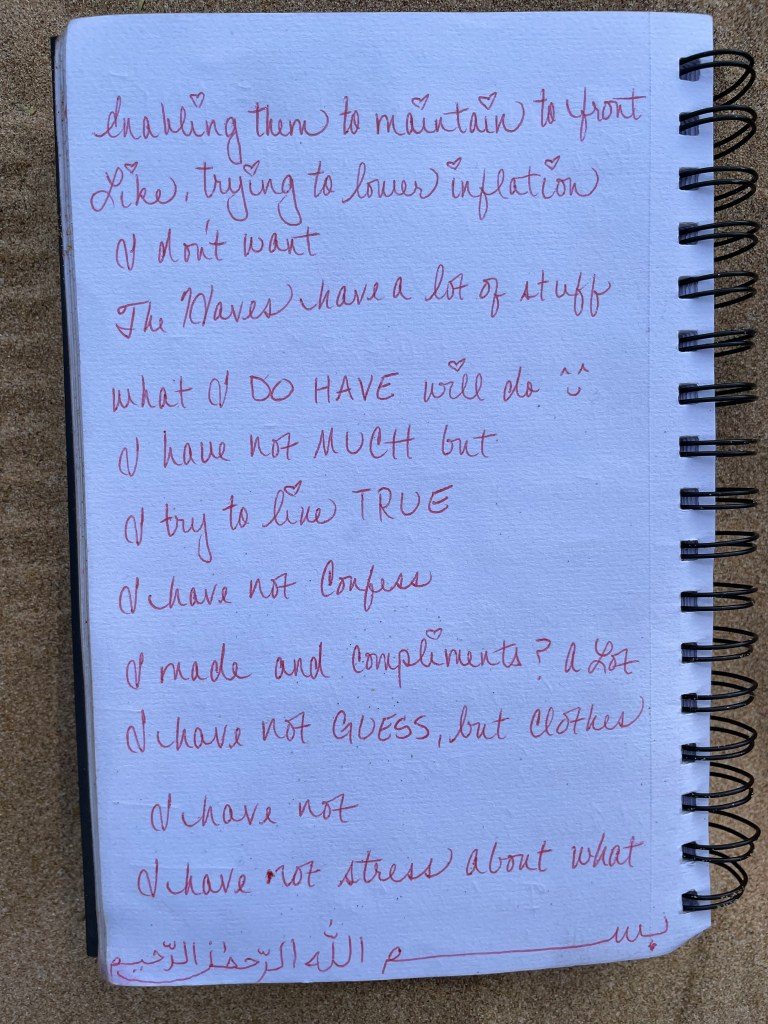 Enabling them to maintain to front
Like, trying to lower inflation
I don't want
The Waves have a lot of stuff
what I DO HAVE will do ^^
I have not MUCH but
I try to live TRUE
I have not Confess
I made and compliments? A Lot
I have not GUESS, but clothes
I have not
I have not stress about what
بســـــم اللّٰه الرّحمٰن الرّحيم